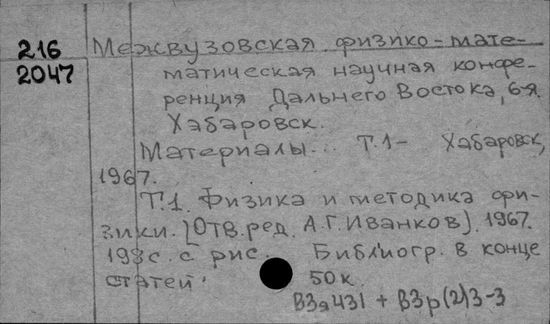 216 Межвузовская физико-мате-
2047 матическая научная конфе-
ренция Дальнего Востока, 6-я.
Хабаровск.
Материалы... Т.1- Хабаровск,
1967.
Т.1. Физика и методика фи-
зики. [Отв.ред. А.Г.Иванков]. 1967.
198с. с рис. Библиогр. в конце
статей. 50к.
В3я431 + В3р(2)3-3